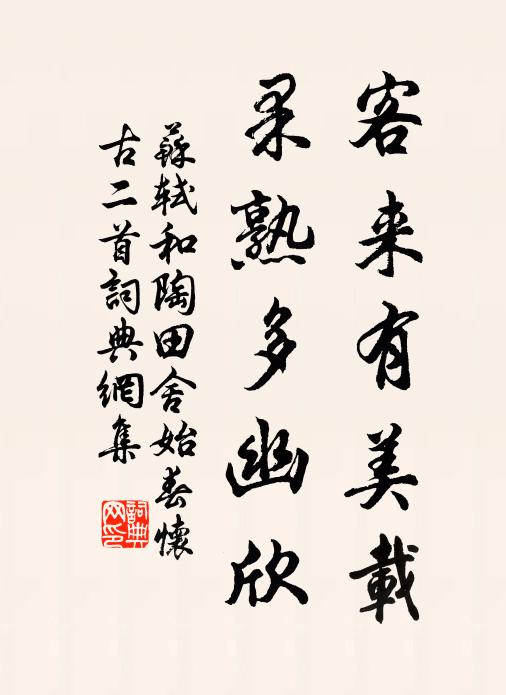 客来有美載
果熟多幽欣
蘇軾和陶田舍始春懷
古二首詞典網集
詞典
网印